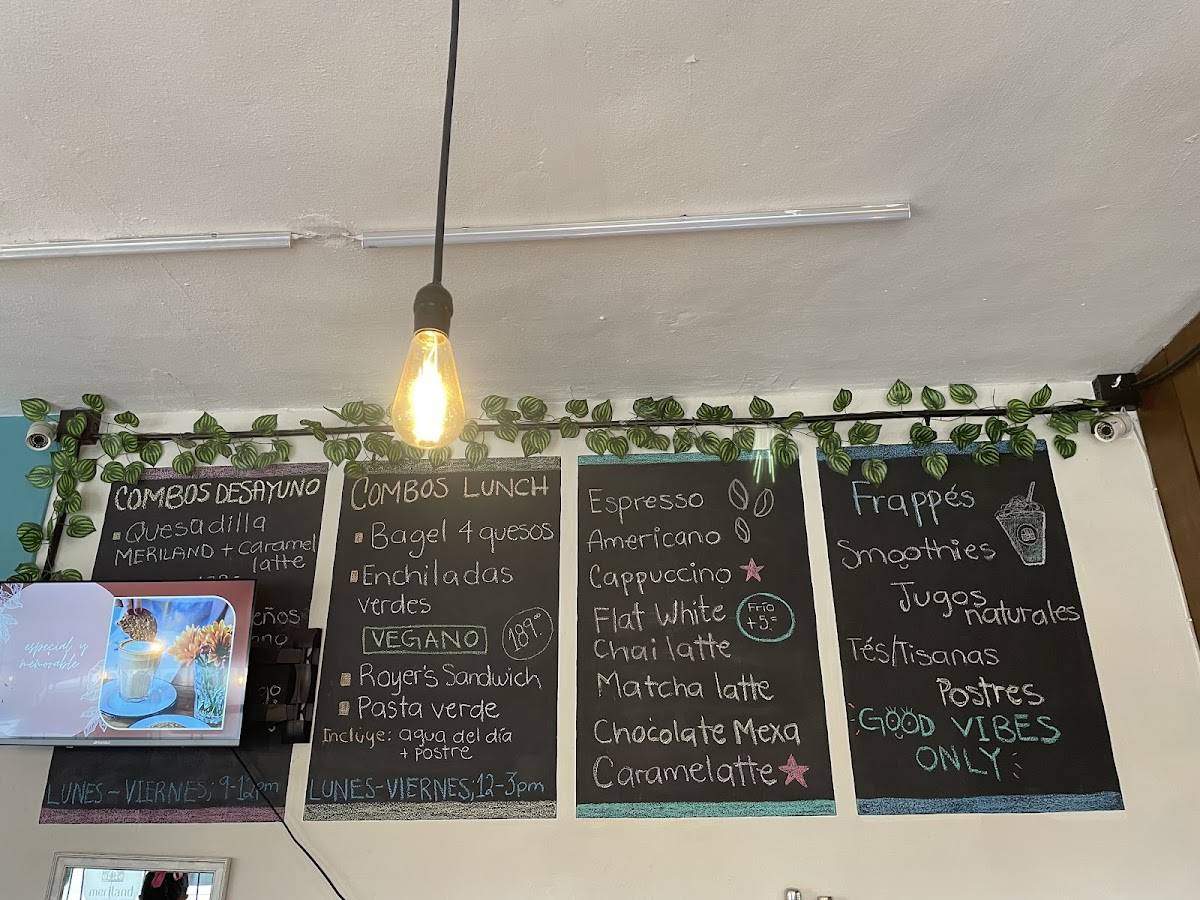 COMBOS DESAYUNO
Quesadilla
MERILAND + caramel
latte
LUNES-VIERNES; 9-12pm
especial y
memorable
COMBOS LUNCH
Bagel 4 quesos
Enchiladas
verdes
VEGANO
189.00
Royer's Sandwich
Pasta verde
Incluye: agua del día
+ postre
LUNES-VIERNES; 12-3pm
Espresso
Americano
Cappuccino
Flat White
Frío
+5.-
Chai latte
Matcha latte
Chocolate Mexa
Caramelatte
Frappés
Smoothies
Jugos
naturales
Tés/Tisanas
Postres
GOOD VIBES
ONLY
meriland